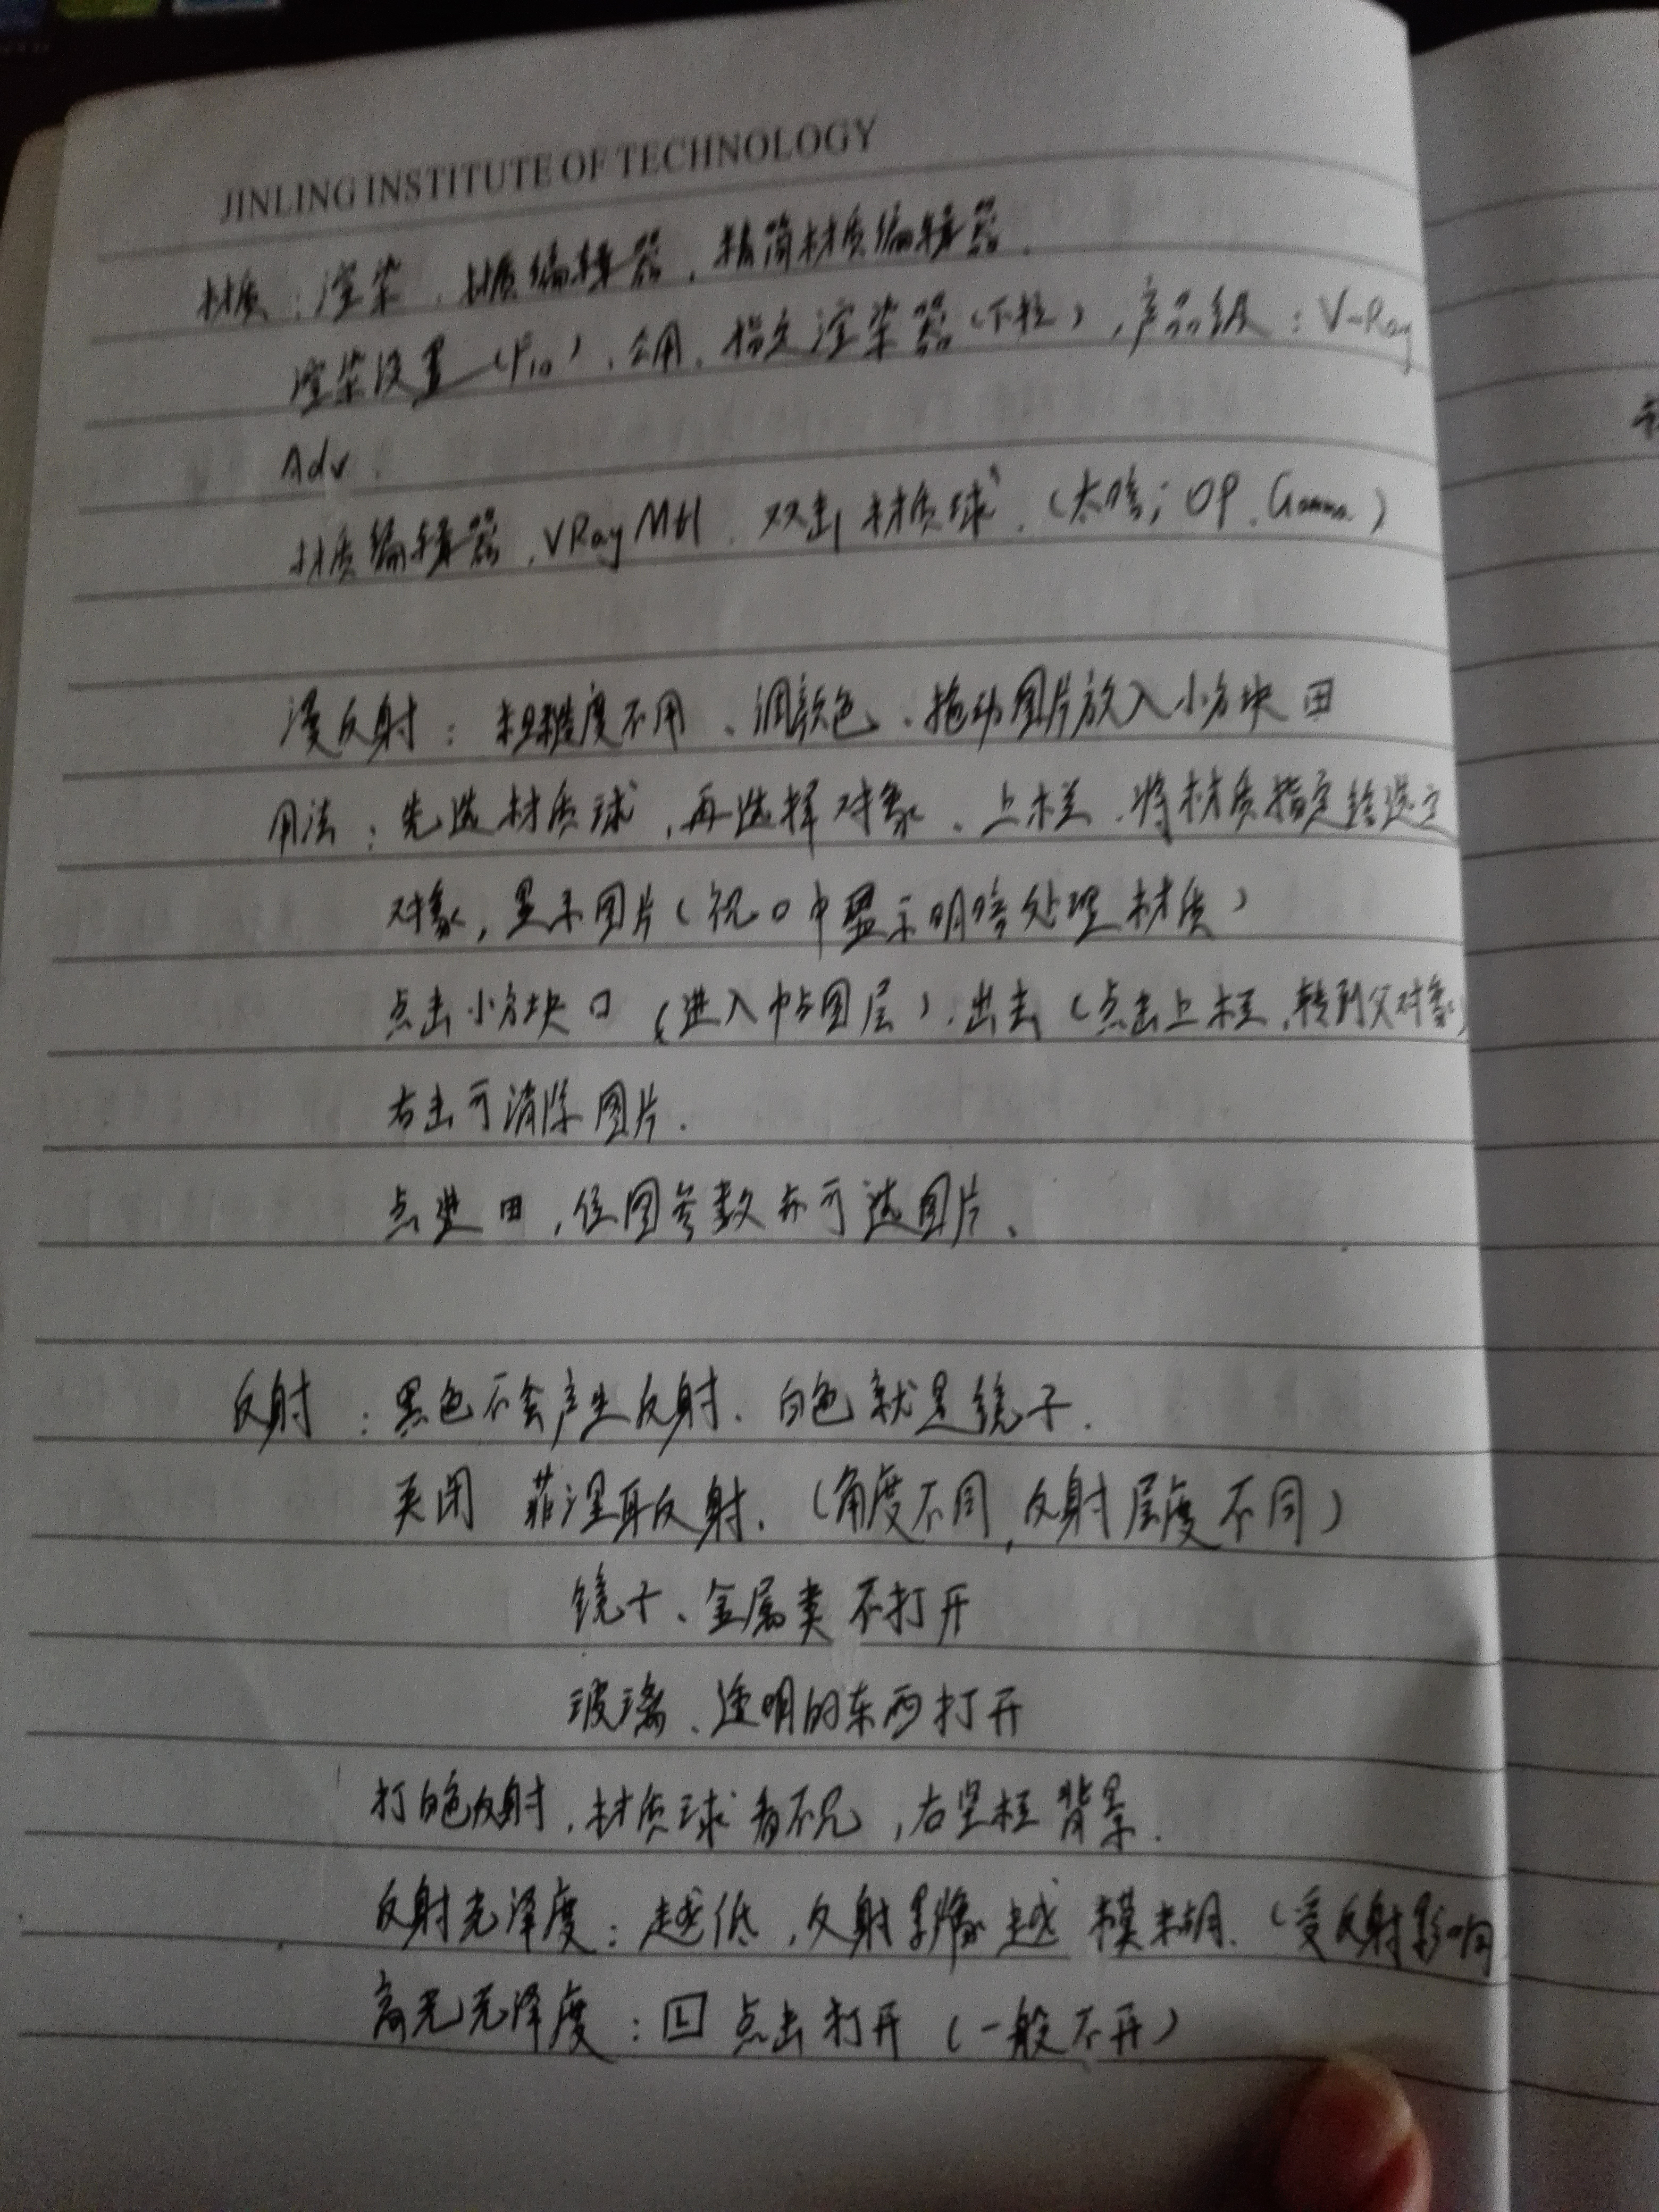 JINLING INSTITUTE OF TECHNOLOGY
材质：渲染、材质编辑器、精简材质编辑器.
渲染设置（F10）、公用、指定渲染器（下拉）,产品级：V-Ray
Adv.
材质编辑器、VRayMtl、双击材质球、（太暗；OP、Gamma）
漫反射：粗糙度不用、调颜色、拖动图片放入小方块 田
用法：先选材质球,再选择对象、上栏、将材质指定给选定
对象,显示图片（视口中显示明暗处理材质）
点击小方块口（进入帖图层）、出去（点击上栏、转到父对象）
右击可清除图片.
点进 田,位图参数亦可选图片、
反射：黑色不会产生反射、白色就是镜子.
关闭 菲涅耳反射、（角度不同,反射层度不同）
镜子、金属类不打开
玻璃、透明的东西打开
打白色反射,材质球看不见,右竖栏背景.
反射光泽度：越低,反射影像越模糊、（受反射影响
高光光泽度：L 点击打开（一般不开）